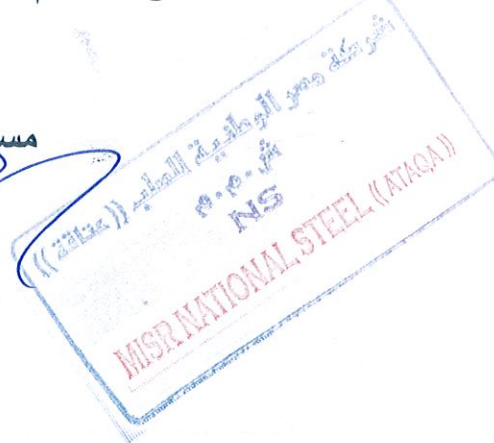 شركة مصر الوطنية للصلب ((عتاقة))
ش.م.م
NS
MISR NATIONAL STEEL ((ATAQA))